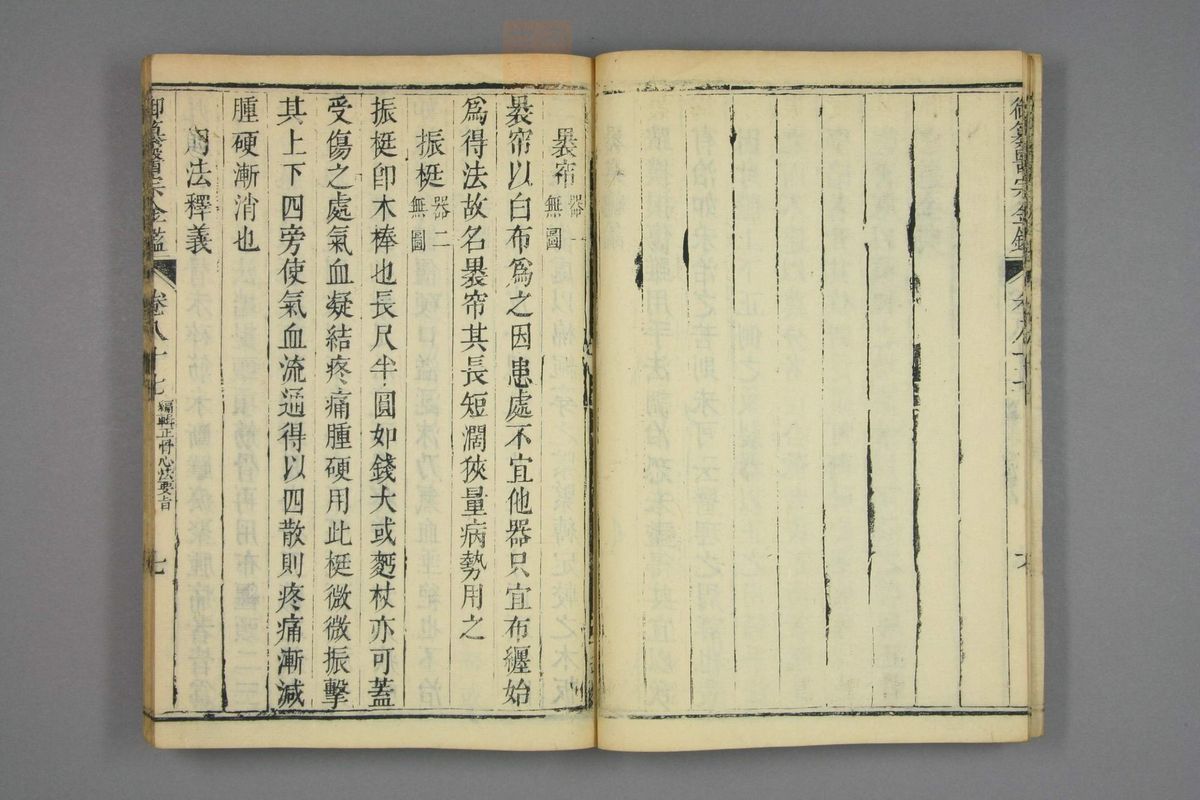 御纂醫宗金鑑
褁帘 器一無圖
褁帘以白布爲之因患處不宜他器只宜布纒始
爲得法故名褁帘其長短濶狹量病勢用之
振梃 器二無圖
振梃卽木棒也長尺半圓如錢大或麪杖亦可葢
受傷之處氣血凝結疼痛腫硬用此梃微微振擊
其上下四旁使氣血流通得以四散則疼痛漸減
腫硬漸消也
法釋義
御纂醫宗金鑑 卷八十七 編輯正骨心法要旨 七